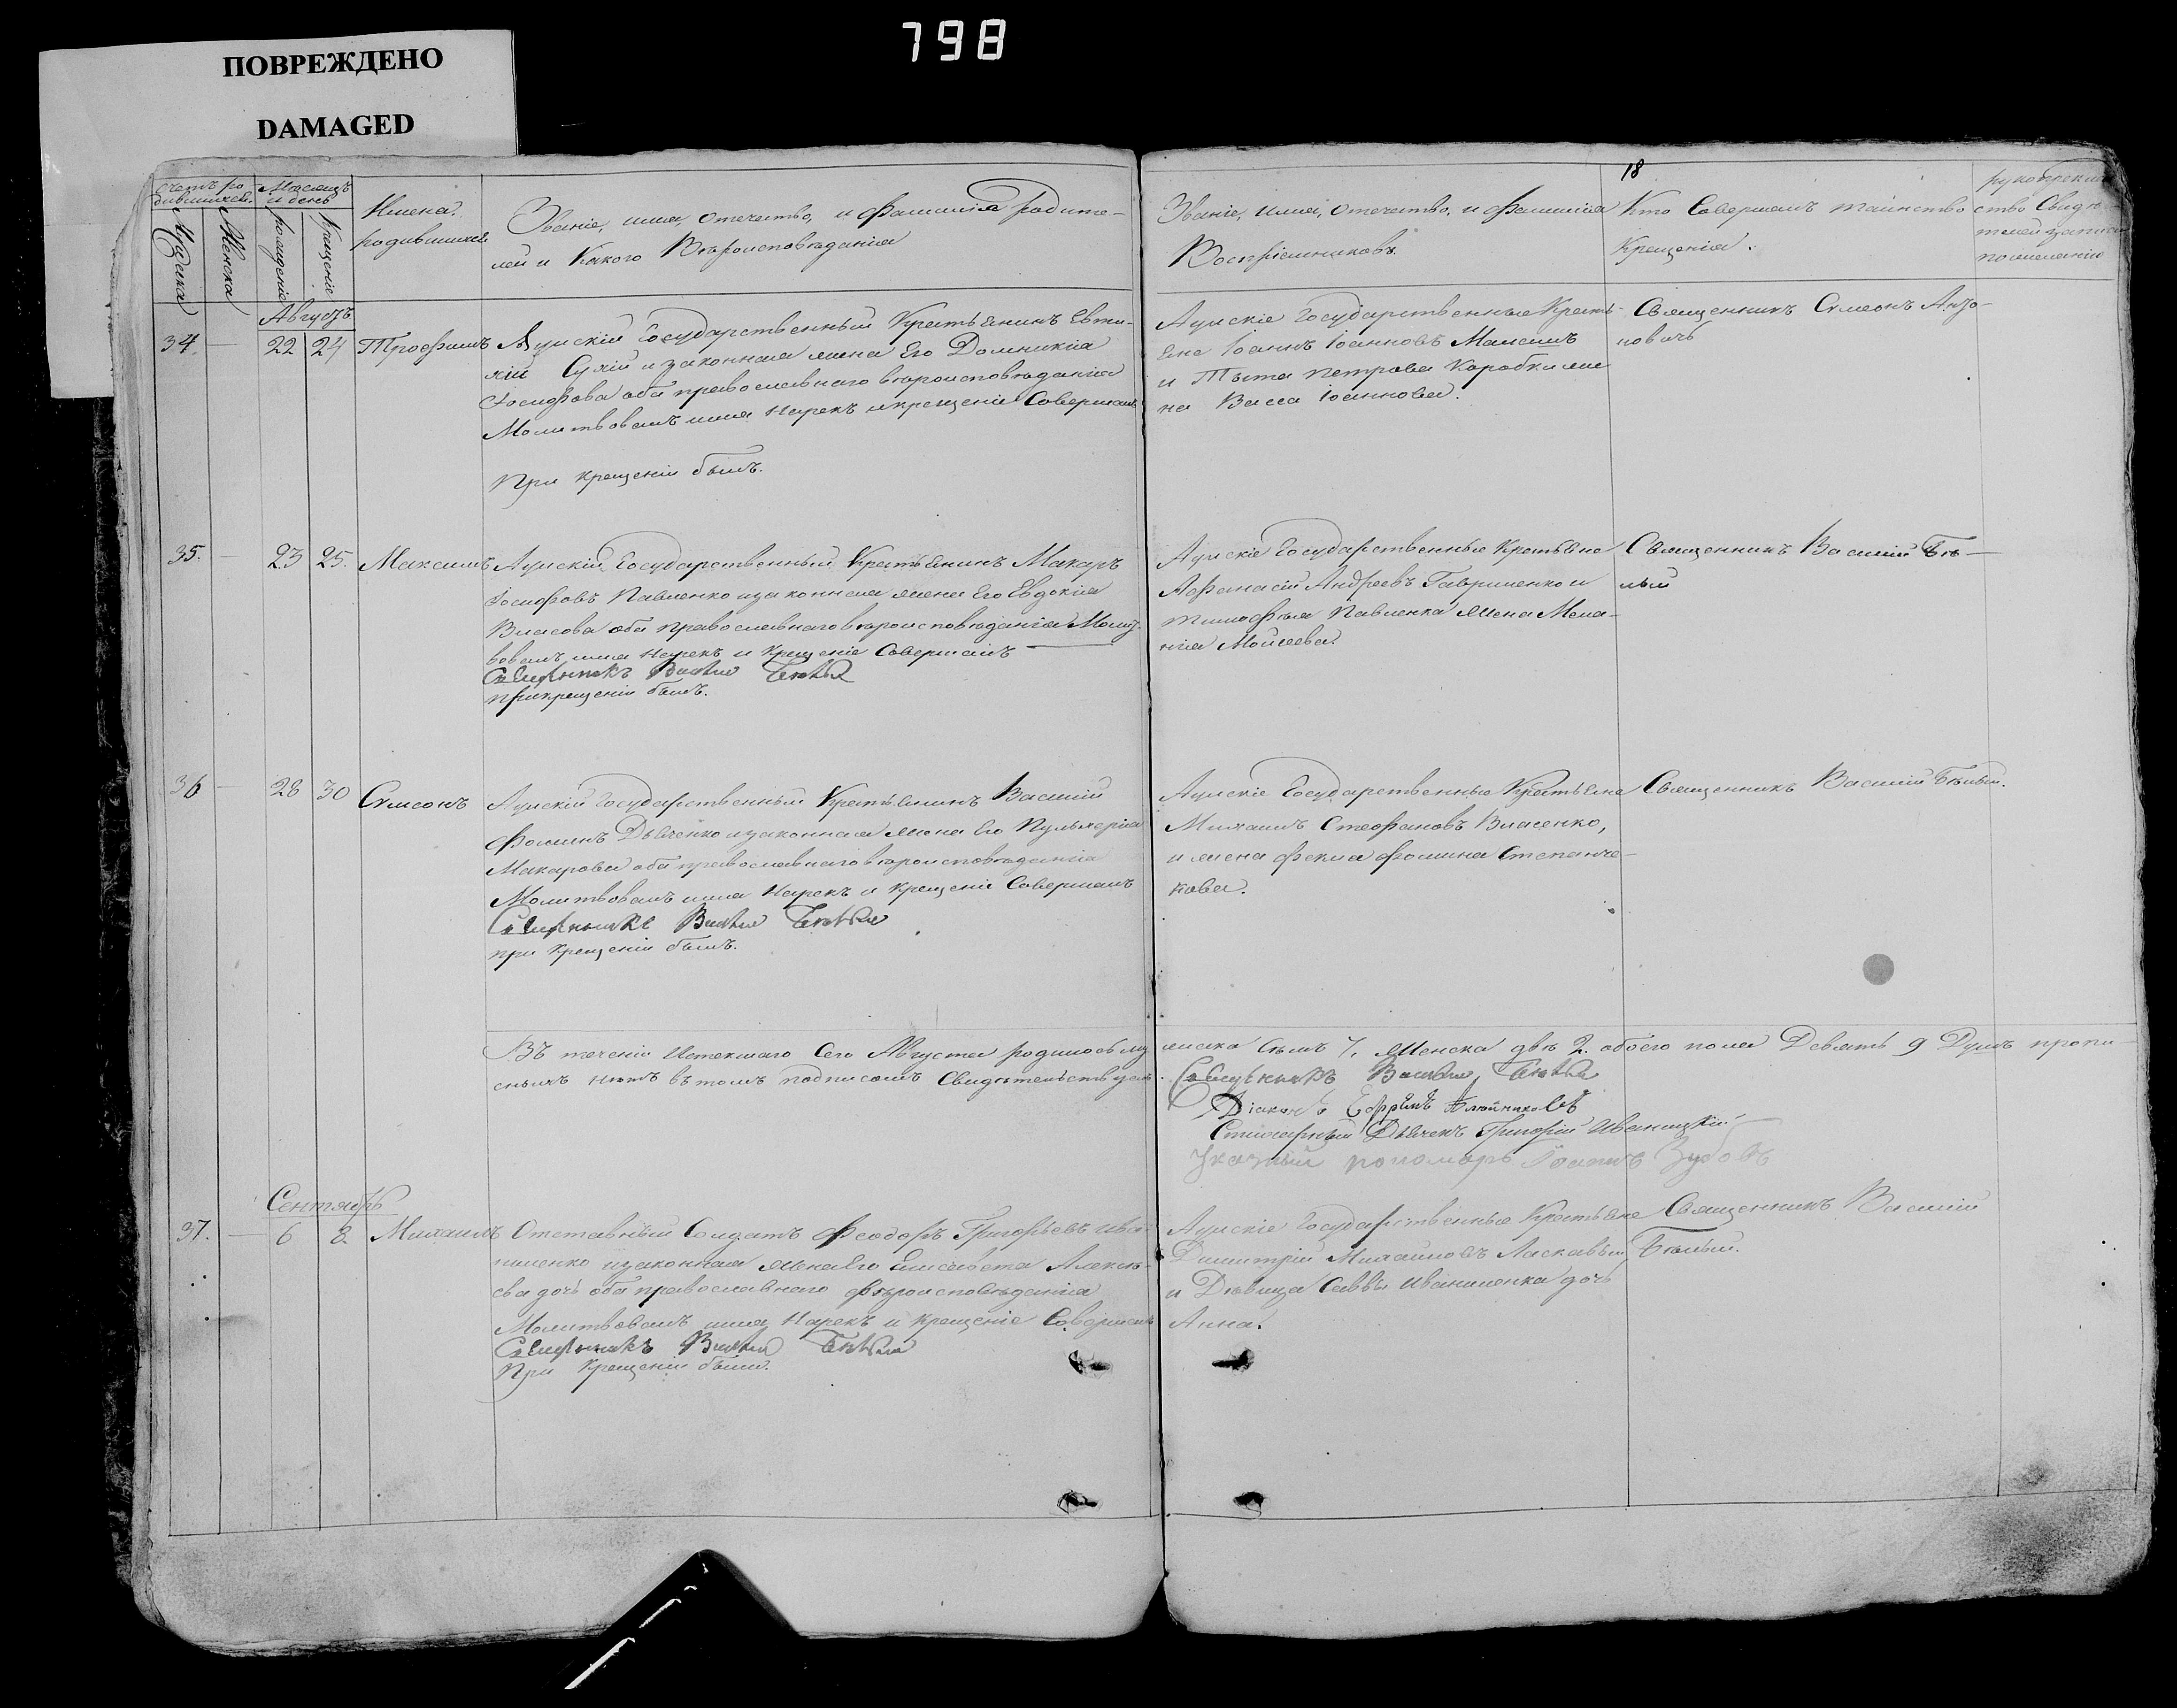 798
ПОВРЕЖДЕНО
DAMAGED
18
Счетъ ро-
дившихся.
Мужеска
Женска
Месяцъ
и день
рожденіе
Крещеніе
Имена
родившихся
Званіе, имя, отечество, и фамилія родите-
лей и Какого Вѣроисповѣданія
Званіе, имя, отечество, и фамилія
Воспріемниковъ.
Кто Совершалъ таинство
Крещенія.
рукоприклад
ство Свидѣ
телей записи
по желанію
Августъ
34. — 22 24 Трофимъ
Аумскій Государственный Крестьянинъ Евти-
хій и законная жена Его Домникія
Іосифова оба православнаго вѣроисповѣданія
Молитвовалъ имя Нарекъ и крещеніе Совершалъ
При крещеніи былъ.
Аумскіе Государственные Кресть-
яне Іоаннъ Іоанновъ
и Петрова Коробки же-
на Васса Іоаннова.
Священникъ Сѵмеонъ Анто-
новичъ
35. — 23 25. Максимъ
Аумскій Государственный Крестьянинъ Макаръ
Іосифовъ Павленко и законная жена Его Евдокія
Власова оба православнаго вѣроисповѣданія Молит-
вовалъ имя Нарекъ и Крещеніе Совершалъ
Священникъ Василій Бѣлый
при крещеніи былъ.
Аумскіе Государственные Крестьяне
Афанасій Андреевъ Гавриленко и
Тимофея Павленка жена Мела-
нія Моисеева.
Священникъ Василій Бѣ-
лый
36 — 28 30 Сѵмеонъ
Аумскій Государственный Крестьянинъ Василій
Фоминъ Дьяченко и законная жена Его Пульхерія
Макарова оба православнаго вѣроисповѣданія
Молитвовалъ имя Нарекъ и крещеніе Совершалъ
Священникъ Василій Бѣлый
при Крещеніи былъ.
Аумскіе Государственные Крестьяне
Михаилъ Стефановъ Власенко,
и жена Фекла Фомина Степанче-
кова.
Священникъ Василій Бѣлый.
Въ теченіи Истекшаго Сего Августа родилось му
жеска Семь 7, Женска двѣ 2. обоего пола Девять 9 Душъ пропи-
сныхъ нѣтъ въ томъ подписомъ Свидѣтельствуемъ.
Священникъ Василій Бѣлый
Діаконъ Ефремъ
Стихарный Дьячекъ Григорій Иваницкій
Указный пономарь Іоаннъ Зубовъ
Сентябрь
37. — 6 8. Михаилъ
Отставный Солдатъ Феодоръ Григорьевъ Ива-
ниленко и законная жена Его Елисавета Алексѣ-
ева дочь оба православнаго вѣроисповѣданія
Молитвовалъ имя Нарекъ и Крещеніе Совершалъ
Священникъ Василій Бѣлый
При Крещеніи были.
Аумскіе Государственные Крестьяне
Димитрій Михаиловъ Ласкавый,
и Дѣвица Саввы Иваниленка дочь
Анна.
Священникъ Василій
Бѣлый.